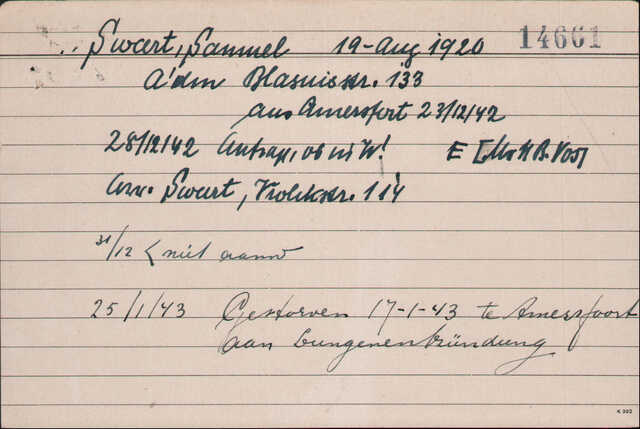 Swart, Samuel 19-Aug 1920 14661
A'dm Blasiusstr. 133
aus Amersfort 23/12/42
28/12/42 Antrag, ob in W! E [Mr H B. Vos]
Anv. Swart, 114
31/12 < niet aanw
25/1/43 Gestorven 17-1-43 te Amersfoort
aan Lungenentzündung
K 392